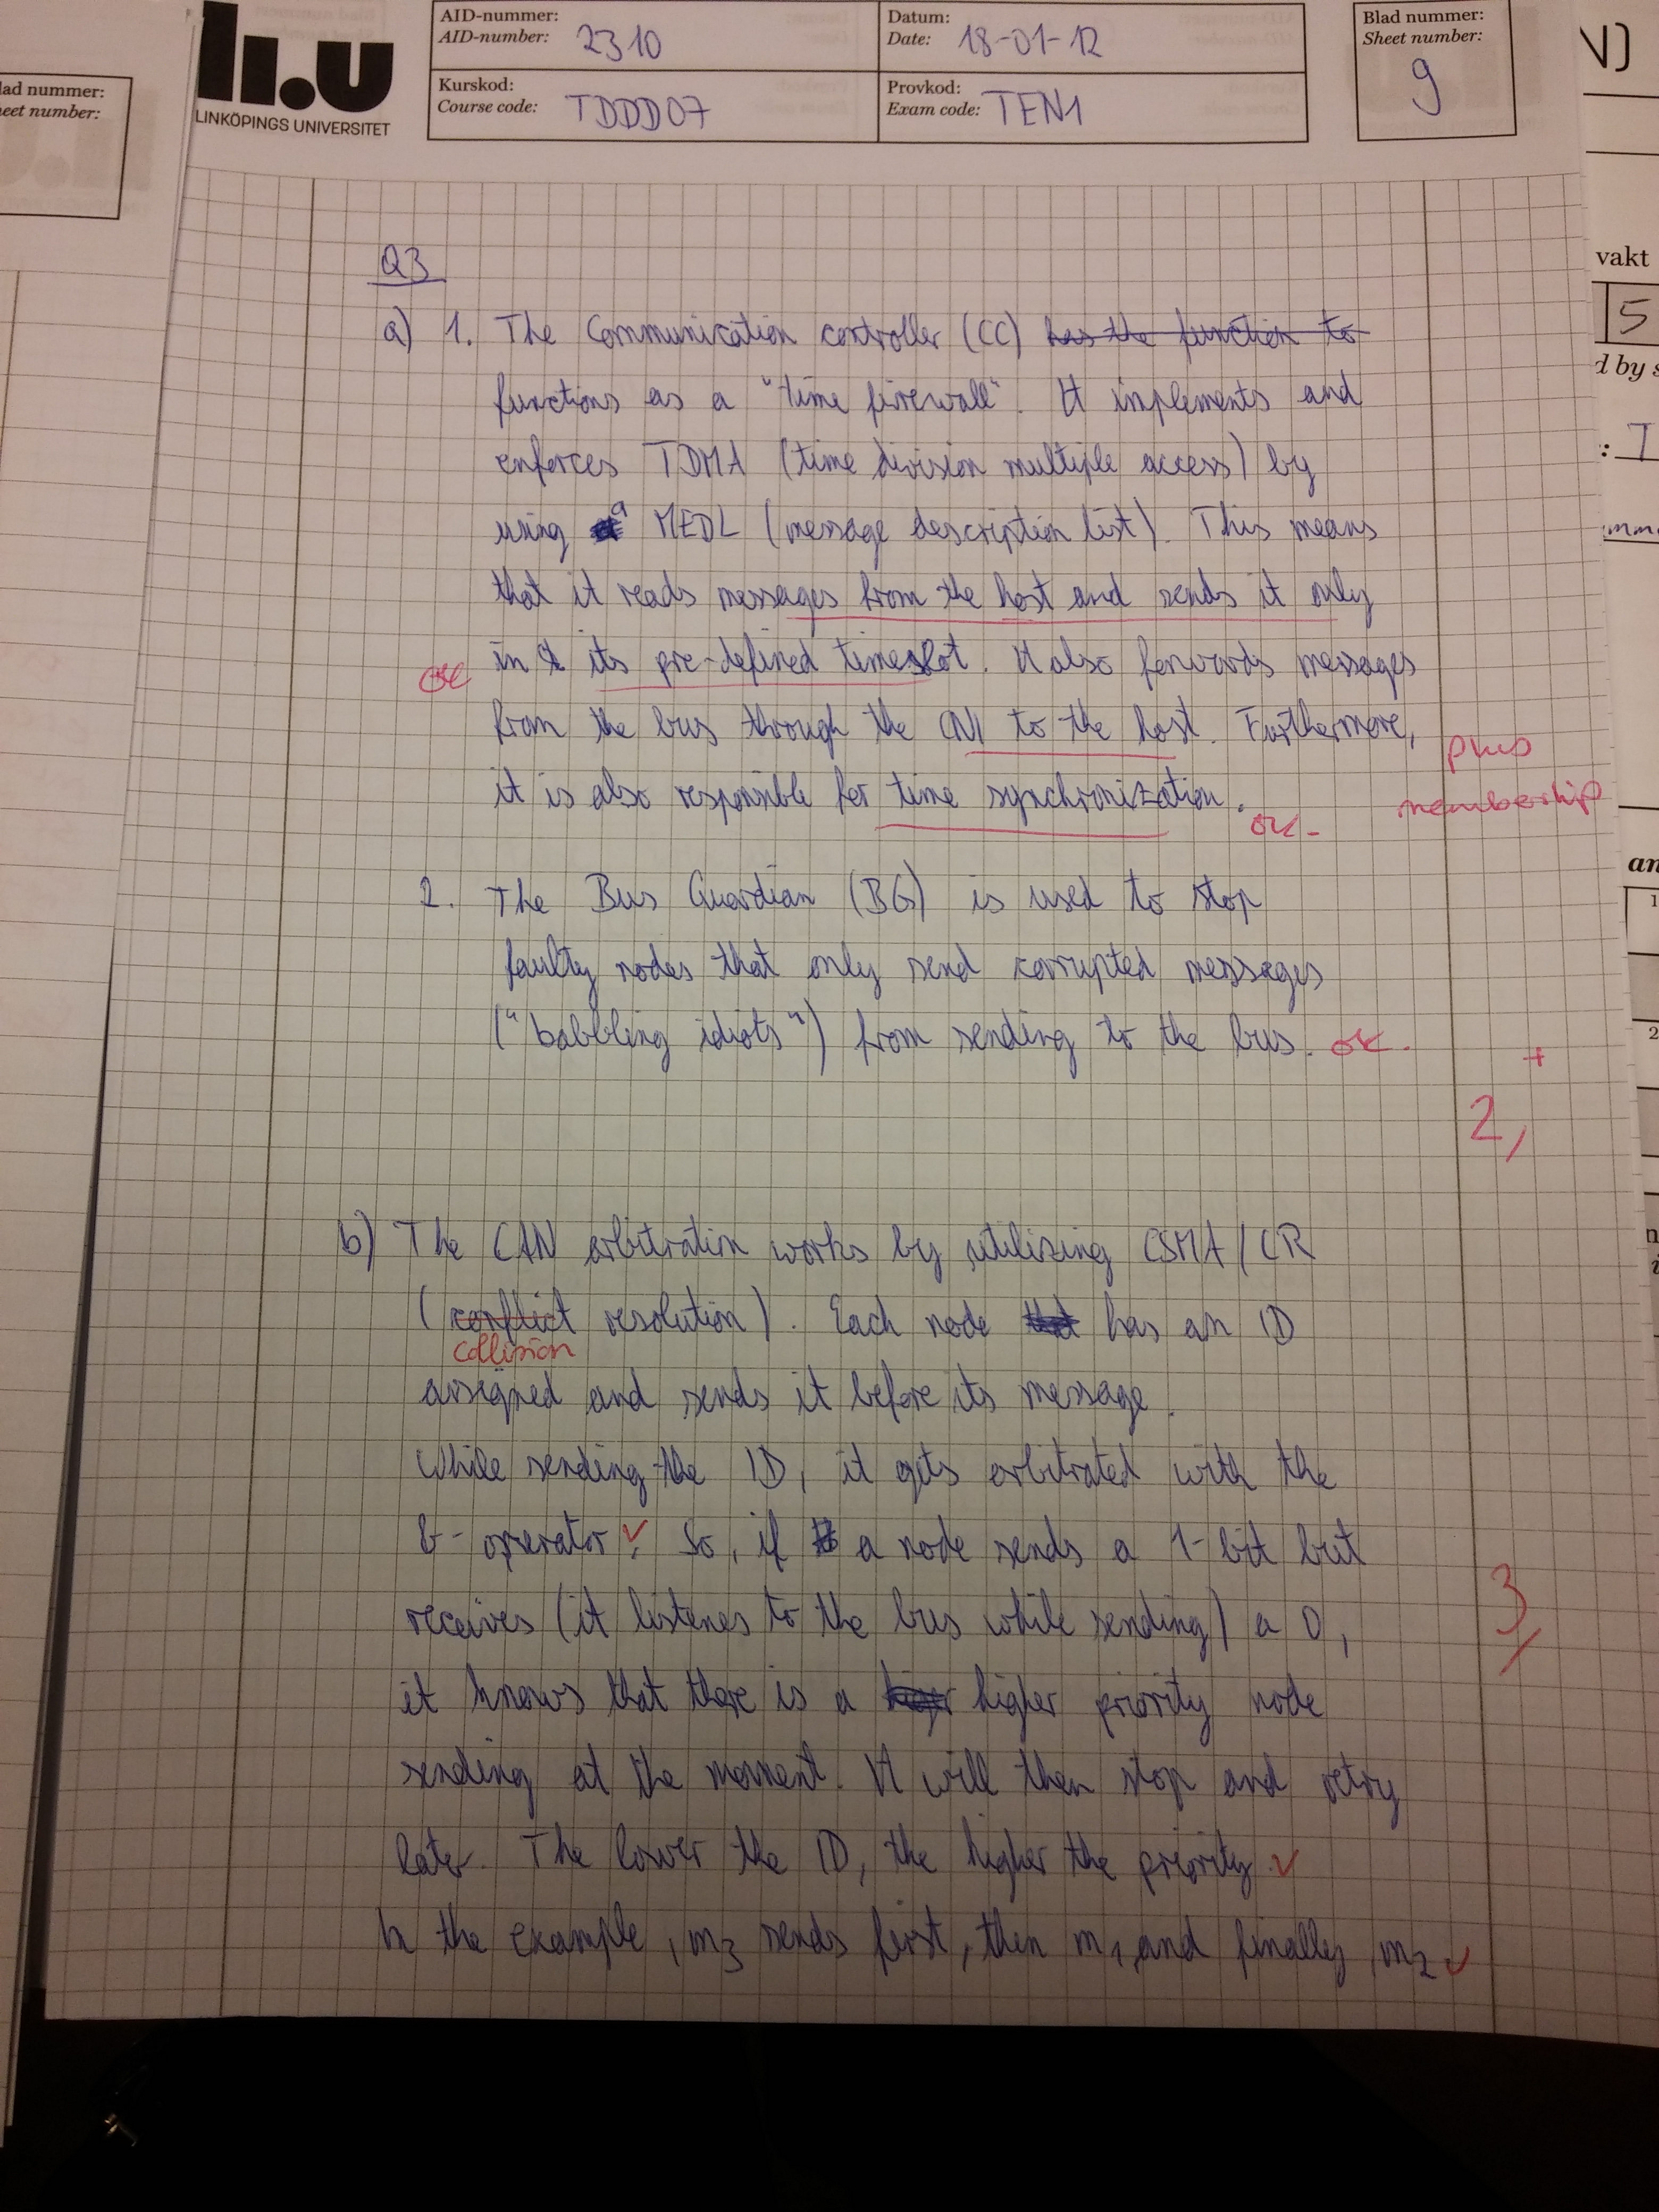 lad nummer:
eet number:
li.u
LINKÖPINGS UNIVERSITET
AID-nummer:
AID-number: 2310
Datum:
Date: 18-01-12
Blad nummer:
Sheet number:
9
Kurskod:
Course code: TDDD07
Provkod:
Exam code: TEN1
N)
vakt
5
d by s
: T
Q3
a) 1. The Communication controller (CC) has the function to
functions as a "time firewall". It implements and
enforces TDMA (time division multiple access) by
using a MEDL (message description list). This means
that it reads messages from the host and sends it only
in its pre-defined timeslot. It also forwards messages
ok
from the bus through the CNI to the host. Furthermore,
plus
it is also responsible for time synchronization.
ok-
membership
2. The Bus Guardian (BG) is used to stop
faulty nodes that only send corrupted messages
("babbling idiots") from sending to the bus. ok.
+
2,
b) The CAN arbitration works by utilizing CSMA/CR
(conflict resolution). Each node that has an ID
collision
assigned and sends it before its message.
While sending the ID, it gets arbitrated with the
&-operator. So, if a node sends a 1-bit but
receives (it listenes to the bus while sending) a 0,
3
it knows that there is a higher priority node
sending at the moment. It will then stop and retry
later. The lower the ID, the higher the priority.
In the example, m3 sends first, then m1, and finally m2
an
1
2